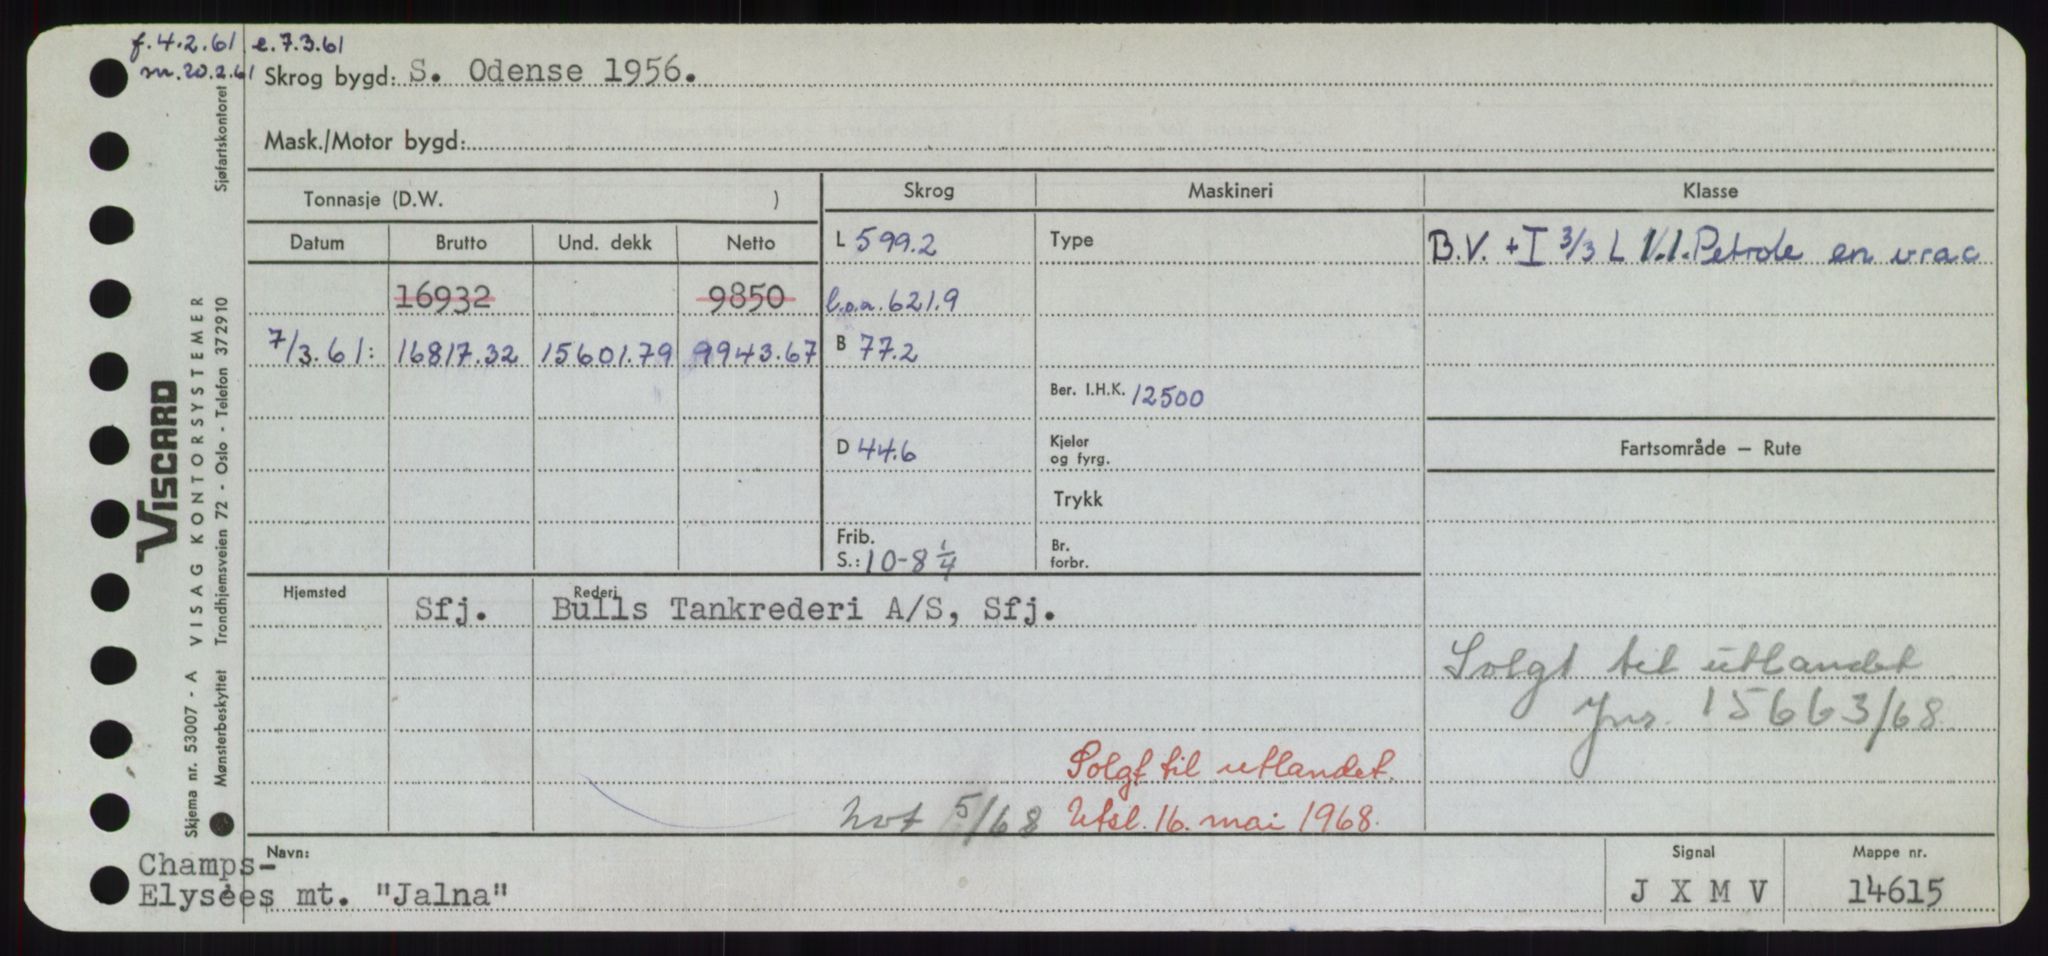 f. 4.2.61 e. 7.3.61
m. 20.2.61 Skrog bygd: S. Odense 1956.
Mask./Motor bygd:
Tonnasje (D.W. ) Skrog Maskineri Klasse
Datum Brutto Und. dekk Netto L 599.2 Type B.V. + I 3/3 L 1/1. Petrole en vrac
16932 9850 l.o.a. 621.9
7/3.61: 16817.32 15601.79 9943.67 B 77.2
Ber. I.H.K. 12500
D 44.6 Kjeler og fyrg. Fartsområde — Rute
Trykk
Frib. S.: 10-8 1/4 Br. forbr.
Hjemsted Rederi
Sfj. Bulls Tankrederi A/S, Sfj.
Solgt til utlandet
Jnr. 15663/68
Solgt til utlandet.
not 5/68 Utsl. 16. mai 1968.
Navn: Signal Mappe nr.
Champs-
Elysées mt. "Jalna" J X M V 14615
Sjøfartskontoret
VISCARD
VISAG KONTORSYSTEMER
Skjema nr. 53007 - A
Mønsterbeskyttet Trondhjemsveien 72 - Oslo - Telefon 372910